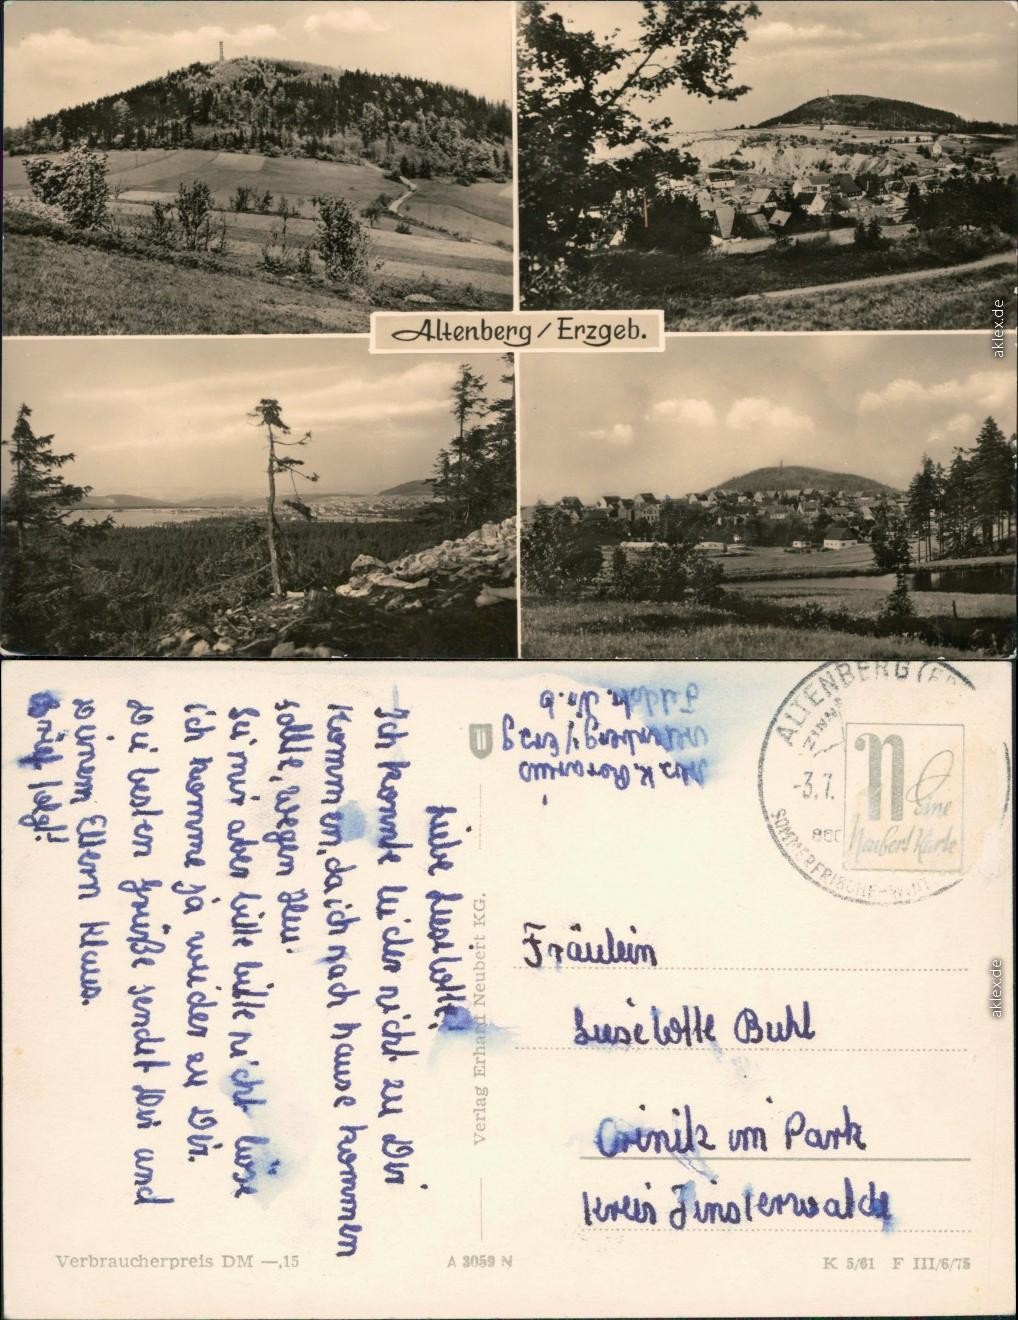 Altenberg / Erzgeb.
aklex.de
Liebe Lieselotte!
Ich konnte leider nicht zu Dir
kommen, da ich nach hause kommen
sollte, wegen Heu!
Sei mir aber bitte bitte nicht böse
ich komme ja wieder zu Dir.
Die besten Grüße sendet Dir und
Deinem Eltern Klaus.
Brief folgt!
Verlag Erhard Neubert KG.
Altenberg/Erzg
ALTENBERG (
-3.7.
SOMMERFRISCHE-
N
Eine
Neubert Karte
Fräulein
Lieselotte Buhl
Crinitz im Park
Kreis Finsterwalde
Verbraucherpreis DM —,15
A 3059 N
K 5/61 F III/6/75
aklex.de